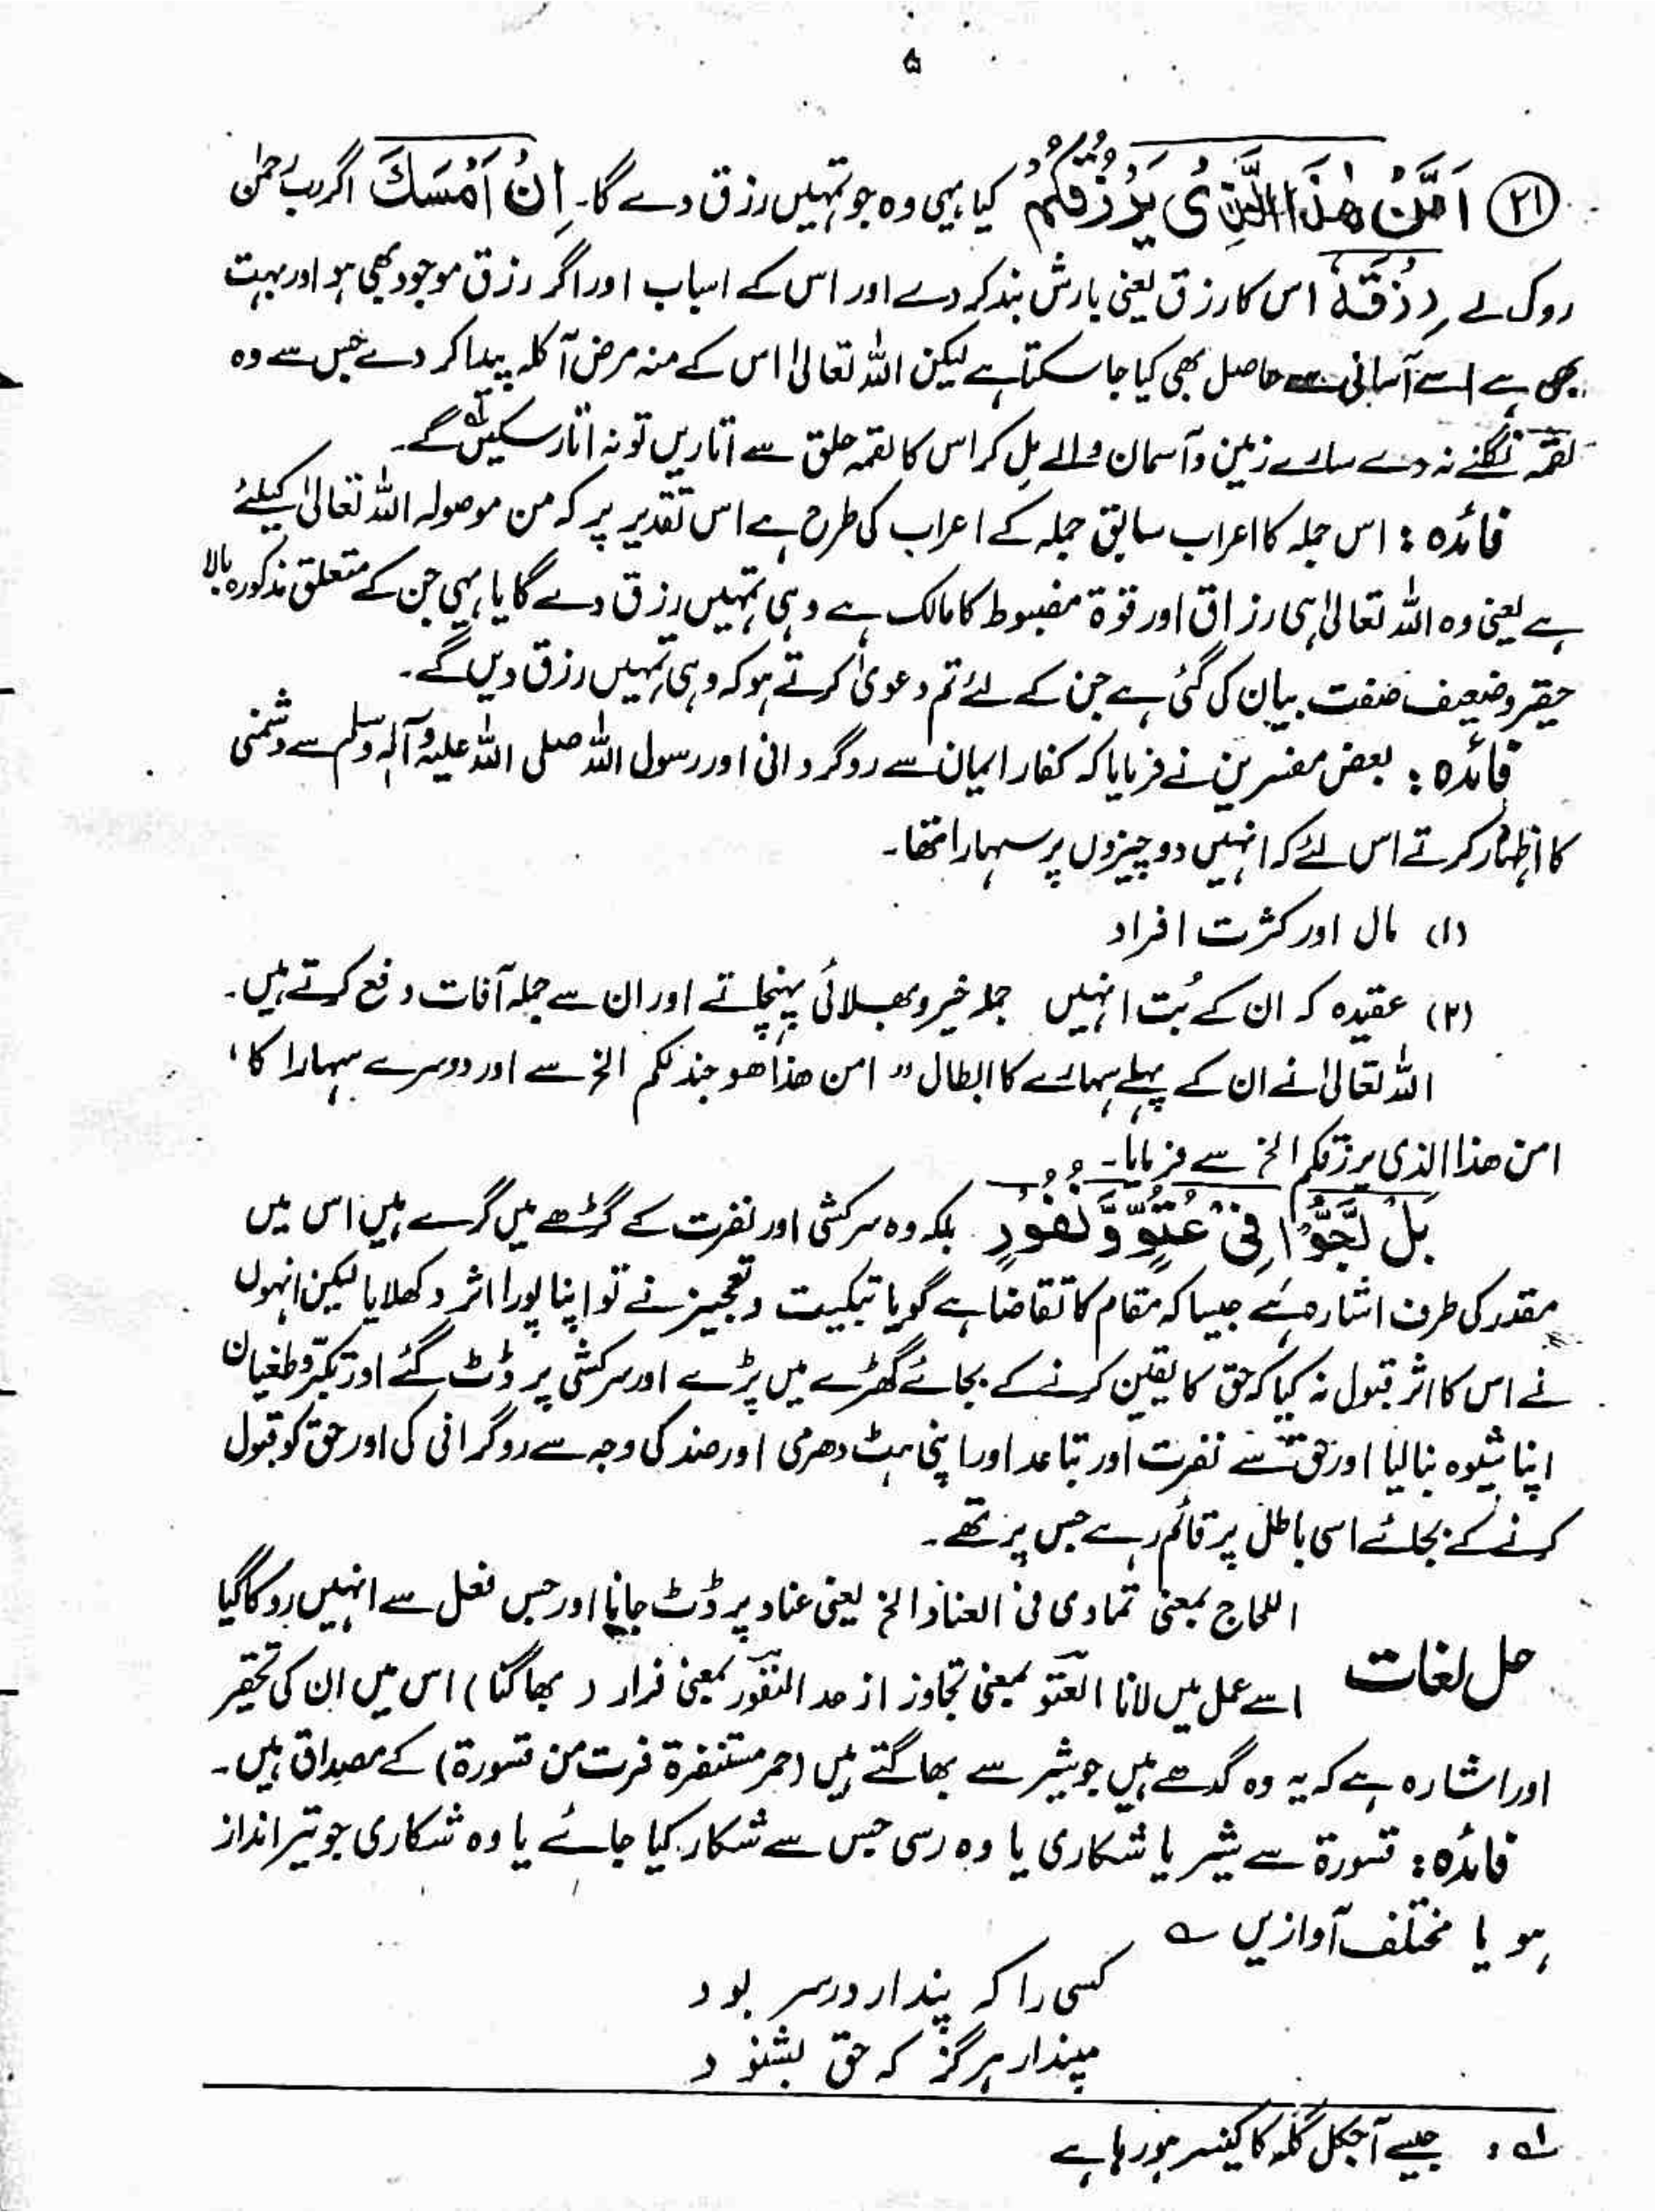 ۵
(۲۱) اَمَّنْ هٰذَا الَّذِیْ یَرْزُقُکُمْ کیا یہی وہ جو تمہیں رزق دے گا۔ اِنْ اَمْسَكَ اگر رب رحمٰن
روک لے رِزْقَهٗ اس کا رزق یعنی بارش بند کر دے اور اس کے اسباب اور اگر رزق موجود بھی ہو اور بہت
بھی ہے اسے آسانی سے حاصل بھی کیا جا سکتا ہے لیکن اللہ تعالیٰ اس کے منہ مرض آکلہ پیدا کر دے جس سے وہ
لقمہ نگلنے نہ دے سارے زمین و آسمان والے مل کر اس کا لقمہ حلق سے اتاریں تو نہ اتار سکیں گے۔
فائدہ : اس جملہ کا اعراب سابق جملہ کے اعراب کی طرح ہے اس تقدیر پر کہ من موصولہ اللہ تعالیٰ کیلئے
ہے یعنی وہ اللہ تعالیٰ ہی رزاق اور قوۃ مضبوط کا مالک ہے وہی تمہیں رزق دے گا یا یہی جن کے متعلق مذکورہ بالا
حقیر و ضعیف صفت بیان کی گئی ہے جن کے لئے تم دعویٰ کرتے ہو کہ وہی تمہیں رزق دیں گے۔
فائدہ : بعض مفسرین نے فرمایا کہ کفار ایمان سے روگردانی اور رسول اللہ صلی اللہ علیہ وآلہ وسلم سے دشمنی
کا اظہار کرتے اس لئے کہ انہیں دو چیزوں پر سہارا تھا۔
(۱) مال اور کثرت افراد
(۲) عقیدہ کہ ان کے بُت انہیں جملہ خیر و بھلائی پہنچاتے اور ان سے جملہ آفات دفع کرتے ہیں۔
اللہ تعالیٰ نے ان کے پہلے سہارے کا ابطال " امن ھذا ھو جند لکم الخ سے اور دوسرے سہارا کا '
امن ھذا الذی یرزقکم الخ سے فرمایا۔
بَلْ لَّجُّوْا فِیْ عُتُوٍّ وَّ نُفُوْرٍ بلکہ وہ سرکشی اور نفرت کے گڑھے میں گرے ہیں اس میں
مقدر کی طرف اشارہ ہے جیسا کہ مقام کا تقاضا ہے گویا تبکیت و تعجیز نے تو اپنا پورا اثر دکھلایا لیکن انہوں
نے اس کا اثر قبول نہ کیا کہ حق کا یقین کرنے کے بجائے گھڑے میں پڑے اور سرکشی پر ڈٹ گئے اور تکبر و طغیان
اپنا شیوہ بنا لیا اور حق سے نفرت اور تباعد اور اپنی ہٹ دھرمی اور ضد کی وجہ سے روگرانی کی اور حق کو قبول
کرنے کے بجائے اسی باطل پر قائم رہے جس پر تھے۔
اللجاج بمعنی تمادی فی العناد الخ یعنی عناد پر ڈٹ جانا اور جس فعل سے انہیں روکا گیا
حل لغات اسے عمل میں لانا العتو بمعنی تجاوز از حد النفور بمعنی فرار ( بھاگنا ) اس میں ان کی تحقیر
اور اشارہ ہے کہ یہ وہ گدھے ہیں جو شیر سے بھاگتے ہیں (حمر مستنفرۃ فرت من قسورۃ) کے مصداق ہیں۔
فائدہ : قسورۃ سے شیر یا شکاری یا وہ رسی جس سے شکار کیا جائے یا وہ شکاری جو تیر انداز
ہو یا مختلف آوازیں ؎
کسی را کہ پندار در سر بود
مپندار ہرگز کہ حق بشنود
لہ : جیسے آجکل گلہ کا کینسر ہو رہا ہے